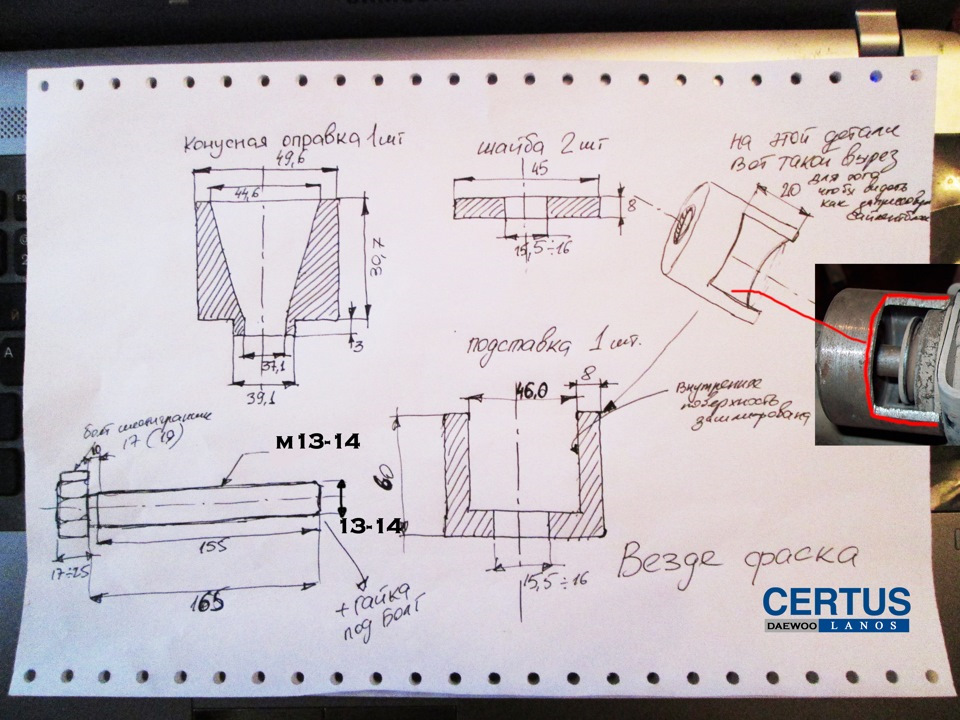 Конусная оправка 1 шт
49,6
44,6
30,7
3
37,1
39,1
шайба 2 шт
45
8
15,5÷16
На этой детали
вот такой вырез
20
для того
чтобы видеть
как
подставка 1 шт.
46,0
8
60
15,5÷16
Внутренние
поверхность
болт
17 (19)
10
м13-14
13-14
155
165
17÷25
+ гайка
под болт
Везде фаска
CERTUS
DAEWOO LANOS
A